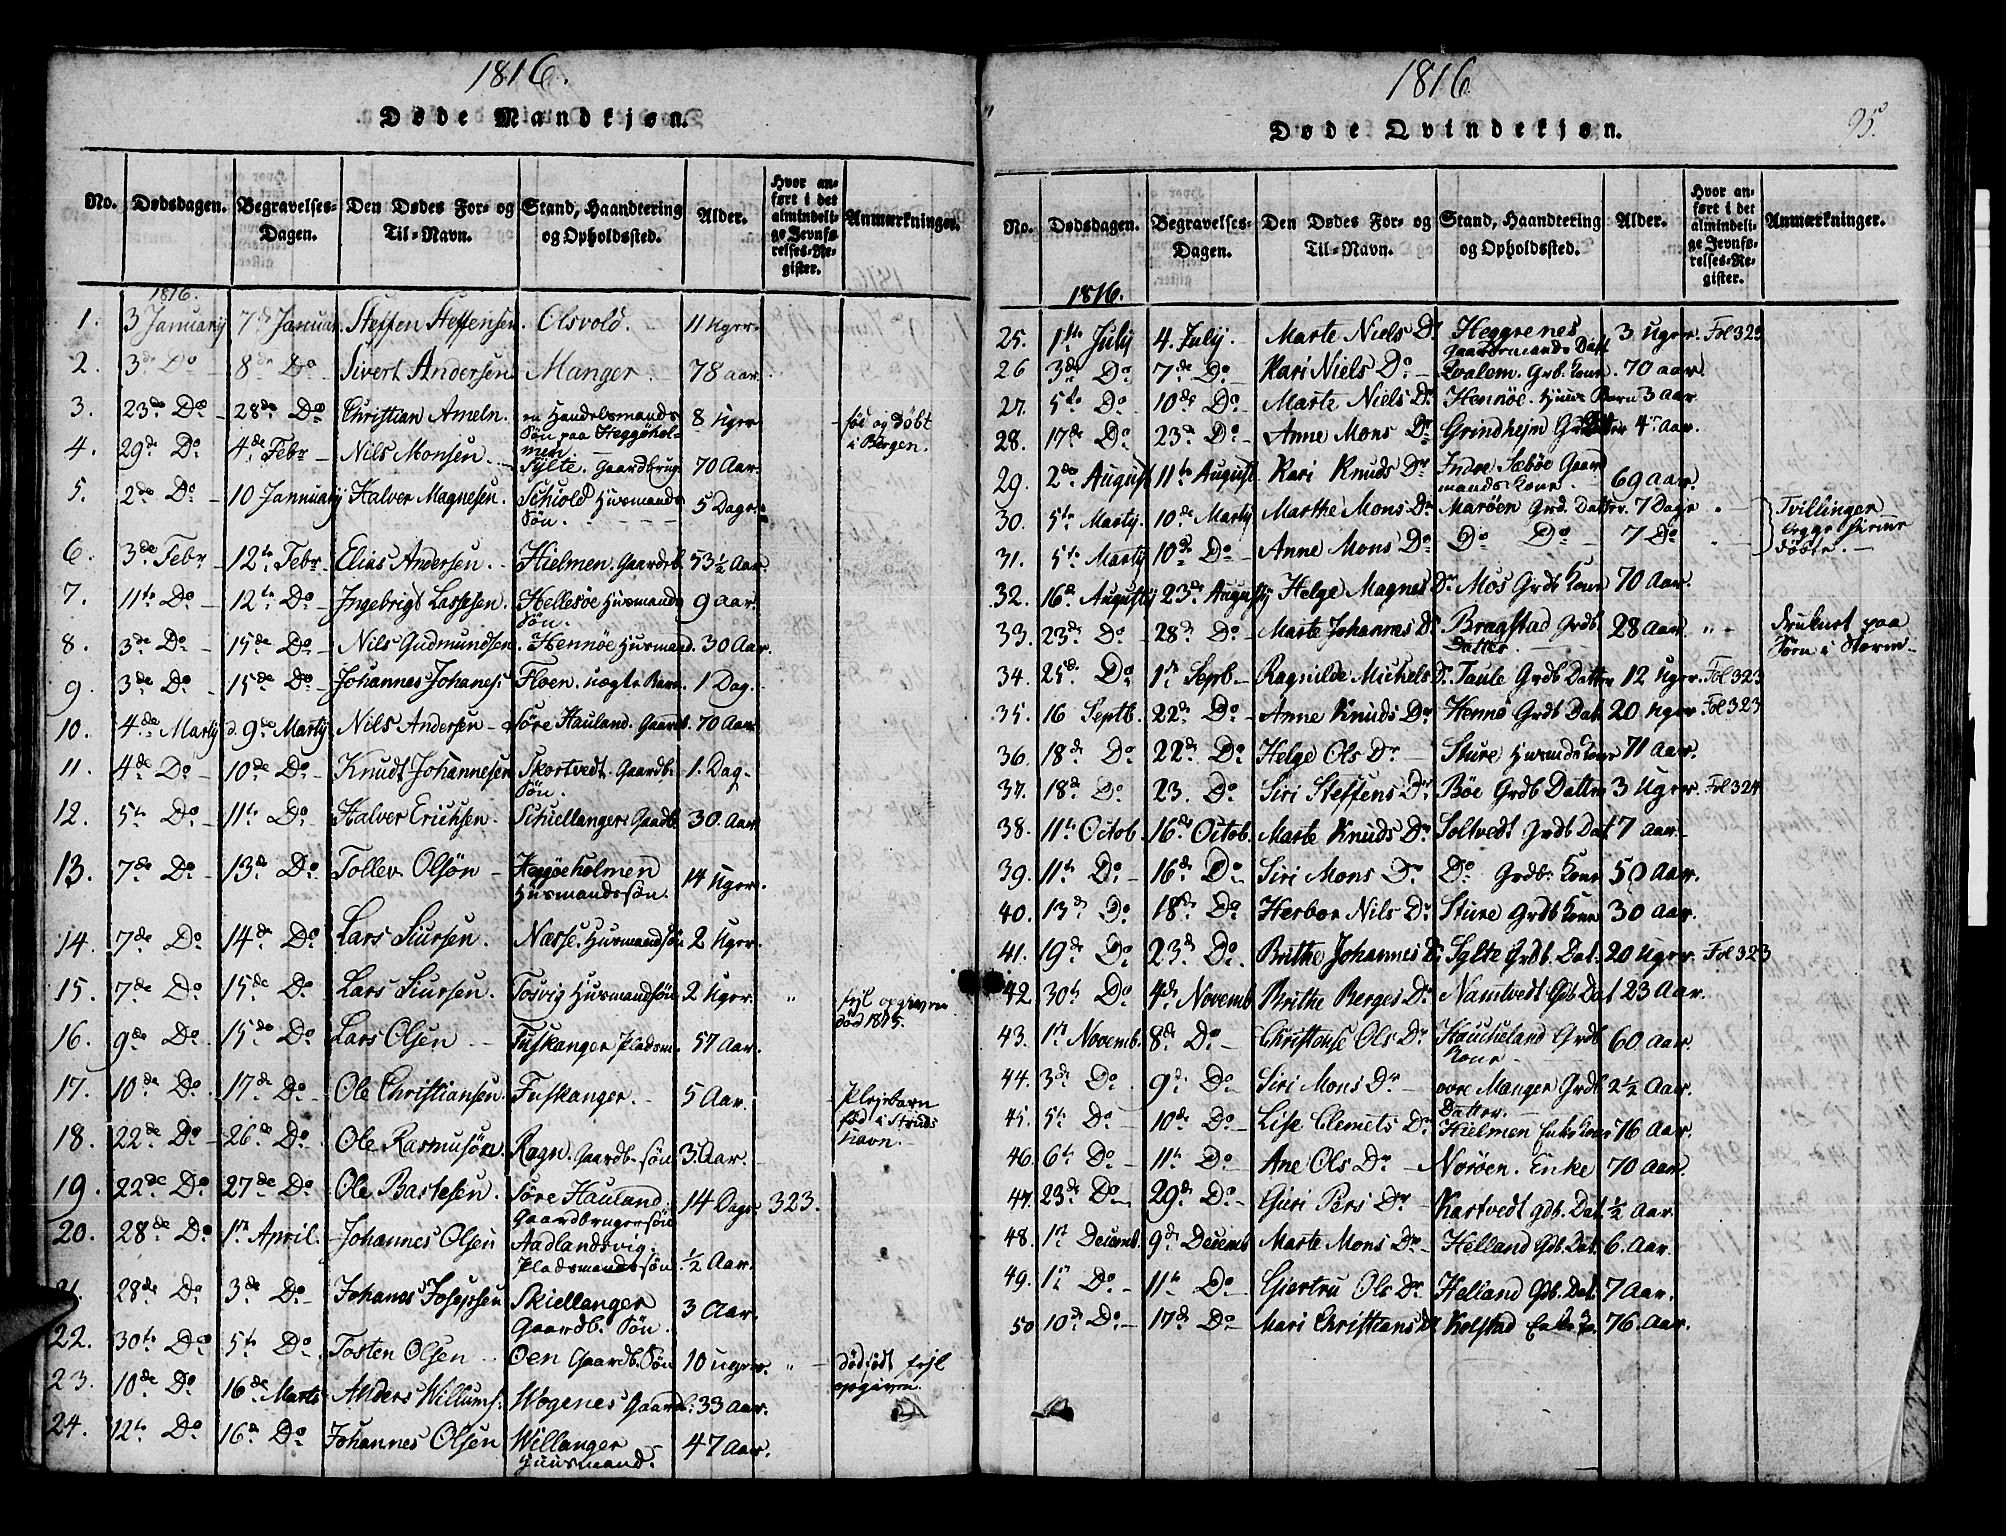 1816.
Døde Mandkjøn.
No. Dødsdagen. Begravelses-Dagen. Den Dødes For- og Til-Navn. Stand, Haandtering og Opholdssted. Alder. Hvor anført i det almindelige Jevnførelses-Register. Anmærkninger.
1816.
1. 3 January 7de Januar. Steffen Steffensen. Olsvold. 11 Uger.
2. 3de Do 8de Do Sivert Andersen Manger. 78 aar.
3. 23de Do 28de Do Christian Ameln. en Handelsmands 8 Uger
Søn paa Heggøhol-
men.
föd og döbt
i Bergen.
4. 29de Do 4de Febr Nils Monsen. Sylte. Gaardbrug. 70 Aar.
5. 2den Do 10 Jannuary Halver Magnesen. Husmands 5 Dage
Søn.
6. 3de Febr 12te Febr Elias Andersen. Hielmen. Gaardb. 53½ Aar.
7. 11te Do 12te Do Ingebrigt Lassesen. Hellesøe Husmands 9 aar.
Søn.
8. 3de Do 15de Do Nils Gudmundsen. Hennøe Husmand. 30 Aar.
9. 3de Do 15de Do Johannes Johanes: Floen. uægte Barn. 1 Dag.
10. 4de Martij d. 9de Martij Nils Andersen Søre Hauland. Gaardb. 70 Aar.
11. 4de Do 10de Do Knudt Johannesen Skortvedt. Gaardb. 1. Dag
Søn.
12. 5te Do 11te Do Halver Erichsen. Schiellanger Gaardb. 30. Aar.
13. 7de Do 13de Do Tollev Olsøn Heggøeholmen 14 Uger.
Husmandssøn.
14. 7de Do 14de Do Lars Siursen. Næsse. Husmandsøn 2 Uger.
15. 7de Do 15de Do Lars Siursen. Tosvig Husmandsøn 2 Uger. " fejl opgiven
död 1815.
16. 9de Do 15de Do Lars Olsen Fuskanger Pladsm. 57 Aar.
17. 10de Do 17de Do Ole Christiansen. Fuskanger. 5 Aar. Plejebarn
fød i Struds
havn.
18. 22de Do 26de Do Ole Rasmusøn. Ragn. Gaardb. søn 3. Aar.
19. 22de Do 27de Do Ole Bastesen. Søre Hauland. 14 Dage 323.
Gaardbrugersøn
20. 28de Do 1ste April. Johannes Olsen Aadlandsvig. ½ Aar.
Pladsmandsøn
21. 28de Do 3de Do Johanes Josepsen Skiellanger 3 Aar.
Gaardb. Søn.
22. 30te Do 5te Do Tosten Olsen Oen Gaardb. Søn 10 uger. " dødfødt fejl
opgiven.
23. 10de Do 16de Marts Anders Willums: Wogenes Gaardb. 33 Aar.
24. 12te Do 16de Do Johannes Olsen Willanger 47 Aar.
Huusmand.
1816
95.
Døde Qvindekjøn.
No. Dødsdagen. Begravelses-Dagen. Den Dødes For- og Til-Navn. Stand, Haandtering og Opholdssted. Alder. Hvor anført i det almindelige Jevnførelses-Register. Anmærkninger.
1816.
25. 1ste July 4. July. Marte Niels Dr Heggrenes 3 Uger. Fol 323
Gaardmands Datt
26 3de Do 7de Do Kari Niels Dr Qvalem. Grb. Kone. 70 aar.
27. 5te Do 10de Do Marte Niels Dr Hennøe. Huus Barn 3 aar.
28. 17de Do 23de Do Anne Mons Dr Grindhejm 4 Aar.
29. 2den August 11te August Kari Knuds Dr Indre Sæbøe Gaard 69 aar.
mands Kone.
30. 5te Martij. 10de Martij Marthe Mons Dr Marøen Grd. Datter. 7 Dage " Tvillinger
begge hieme
döbte.
31. 5te Martij 10de Do Anne Mons Dr Do Do 7 Do
32. 16de Augustij 23de Augustij Helge Magnes Dr Mos Grdb Kone 70 Aar.
33. 23de Do 28de Do Marte Johannes Dr Bragstad Grdb 28 Aar " druknet paa
Datter.
Søen i Storm
34. 25de Do 1ste Septb. Ragnilde Michels Dr. Taule Grdb Datter 12 Uger. Fol 323
35. 16 Septb. 22de Do Anne Knuds Dr Hennø Grdb Dat. 20 Uger Fol 323
36. 18de Do 22de Do Helge Ols Dr Sture Husmds Kone 71 Aar.
37. 18de Do 23. Do Siri Steffens Dr Bøe Grdb Datter 3 Uger. Fol 324
38. 11te Octob. 16de Octob. Marte Knuds Dr Soltvedt Grdb Dat 7 Aar.
39. 11te Do 16de Do Siri Mons Dr Do Grdb: Kone 50 Aar.
40. 13de Do 18de Do Herbor Nils Dr Sture Grdb Kone 30 Aar.
41. 19de Do 23de Do Brithe Johannes Dr Sylte Grdb. Dat. 20 Uger Fol 323
42 30te Do 4de Novemb Brithe Berges Dr Namtvedt Gdb Dat 23 Aar.
43. 1ste Novemb. 8de Do Christense Ols Dr Haucheland Grdb 60 Aar.
Kone
44. 3de Do 9de Do Siri Mons Dr ovre Manger Grdb 2½ Aar.
Datter.
45. 5te Do 10de Do Lise Clemets Dr Hielmen 16 Aar.
46. 6te Do 11te Do Ane Ols Dr Norøen. Enke 70 Aar.
47. 23de Do 29de Do Guri Pers Dr Kartvedt gdb. Dat ½ Aar.
48. 1ste Decemb. 9de Decemb Marte Mons Dr Helland Gdb. Dat. 6. Aar.
49. 1ste Do 11te Do Giertru Ols Dr Helland Gdb. Dat. 7 Aar.
50 10de Do 17de Do Mari Christians Dr Kolstad Enke 76. Aar.